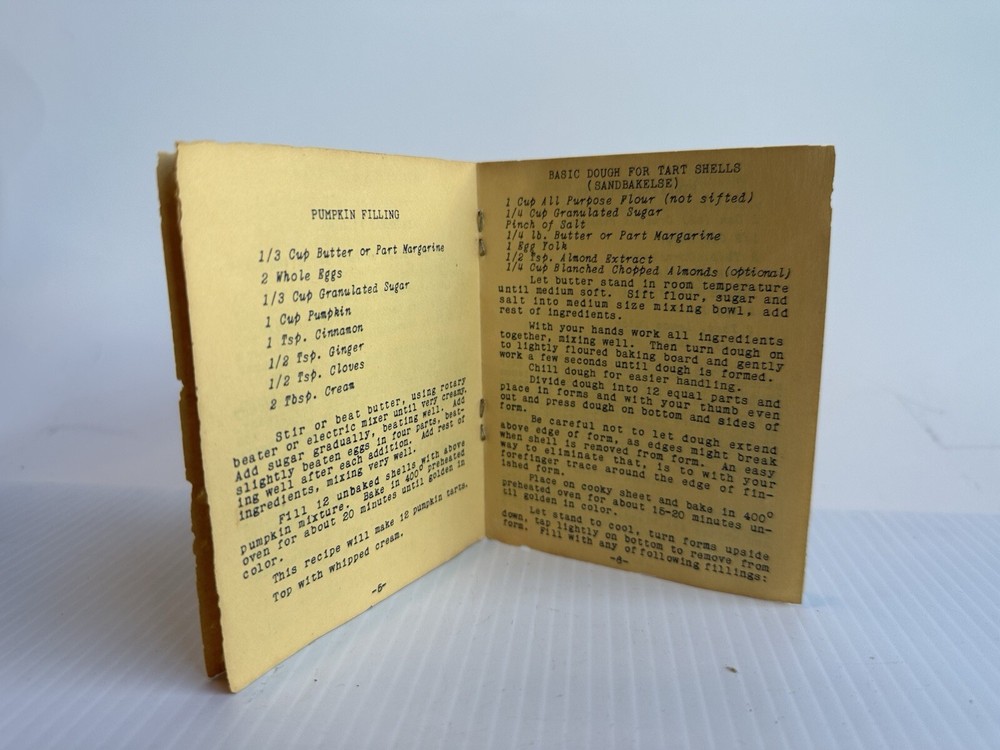 PUMPKIN FILLING
1/3 Cup Butter or Part Margarine
2 Whole Eggs
1/3 Cup Granulated Sugar
1 Cup Pumpkin
1 Tsp. Cinnamon
1/2 Tsp. Ginger
1/2 Tsp. Cloves
2 Tbsp. Cream
Stir or beat butter, using rotary
beater or electric mixer until very creamy.
Add sugar gradually, beating well. Add
slightly beaten eggs in four parts, beat-
ing well after each addition. Add rest of
ingredients, mixing very well.
Fill 12 unbaked shells with above
pumpkin mixture. Bake in 400° preheated
oven for about 20 minutes until golden in
color.
This recipe will make 12 pumpkin tarts.
Top with whipped cream.
BASIC DOUGH FOR TART SHELLS
(SANDBAKELSE)
1 Cup All Purpose Flour (not sifted)
1/4 Cup Granulated Sugar
Pinch of Salt
1/4 lb. Butter or Part Margarine
1 Egg Yolk
1/2 Tsp. Almond Extract
1/4 Cup Blanched Chopped Almonds (optional)
Let butter stand in room temperature
until medium soft. Sift flour, sugar and
salt into medium size mixing bowl, add
rest of ingredients.
With your hands work all ingredients
together, mixing well. Then turn dough on
to lightly floured baking board and gently
work a few seconds until dough is formed.
Chill dough for easier handling.
Divide dough into 12 equal parts and
place in forms and with your thumb even
out and press dough on bottom and sides of
form.
Be careful not to let dough extend
above edge of form, as edges might break
when shell is removed from form. An easy
way to eliminate that, is to with your
forefinger trace around the edge of fin-
ished form.
Place on cooky sheet and bake in 400°
preheated oven for about 15-20 minutes un-
til golden in color.
Let stand to cool, turn forms upside
down, tap lightly on bottom to remove from
form. Fill with any of following fillings: